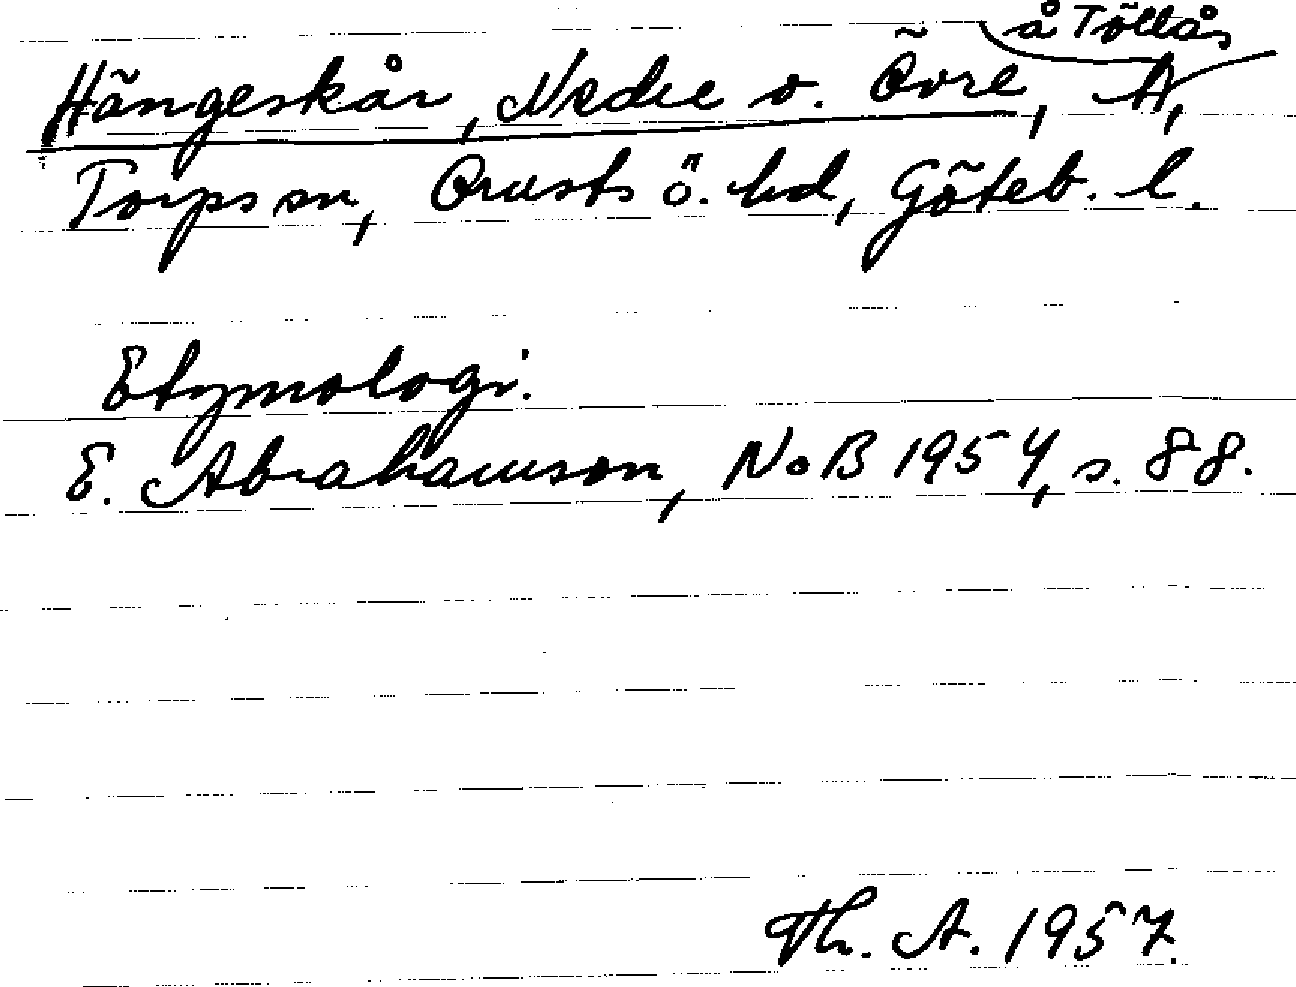 å Töllås
Hängeskår, Nedre o. Övre, A,
Torps sn, Orusts ö. hd, Göteb. l.
Etymologi.
E. Abrahamson, NoB 1954, s. 88.
Th. A. 1957.